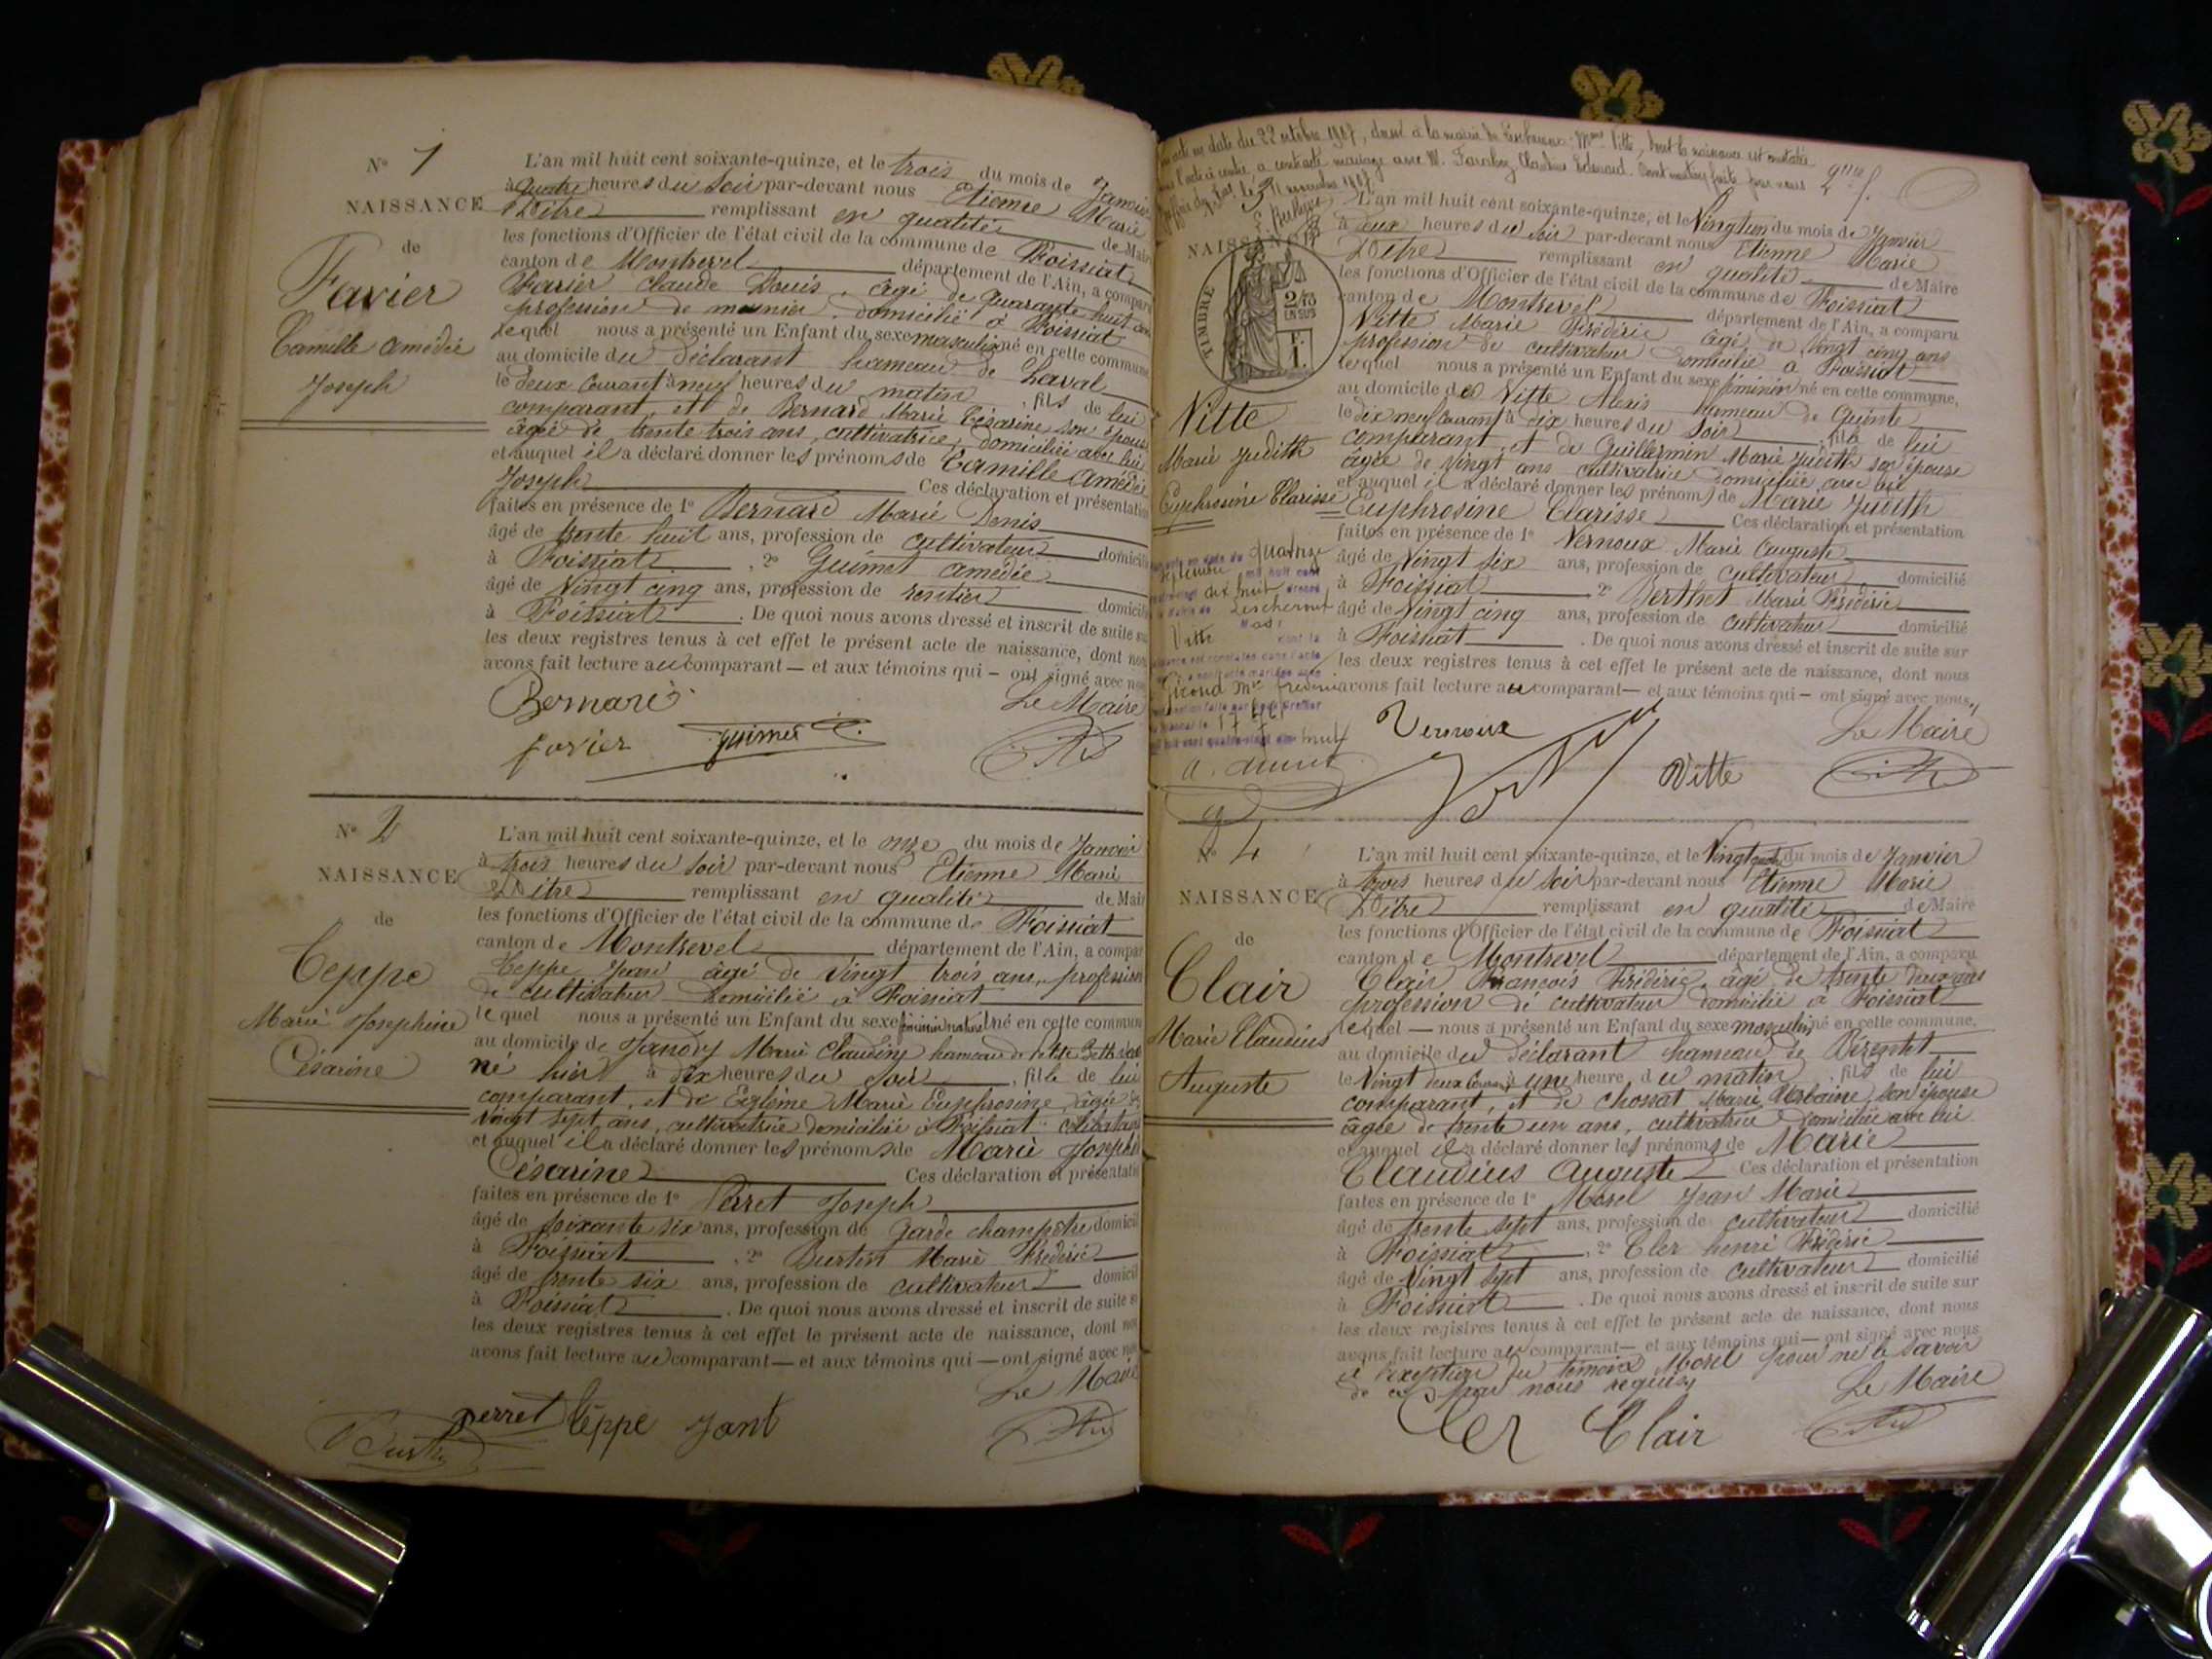 N° 1
NAISSANCE
de
Favier
Camille Amédée
Joseph
L'an mil huit cent soixante-quinze, et le trois du mois de Janvier
à quatre heures du soir par-devant nous Etienne Marie
remplissant en qualité de Mair
les fonctions d'Officier de l'état civil de la commune de Foissiat
canton de Montrevel département de l'Ain, a comparu
Favier Claude Louis, âgé de quarante huit ans
profession de meunier domicilié à Foissiat
lequel nous a présenté un Enfant du sexe masculin né en cette commune
au domicile du déclarant hameau de Laval
le deux courant à neuf heures du matin, fils de lui
comparant, et de Bernard Marie Césarine son épouse
âgée de trente trois ans, cultivatrice, domiciliée avec lui
et auquel il a déclaré donner les prénoms de Camille Amédée
Joseph Ces déclaration et présentation
faites en présence de 1° Bernard Marie Denis
âgé de trente huit ans, profession de cultivateur domicilié
à Foissiat, 2° Guimet Amédée
âgé de Vingt cinq ans, profession de rentier domicilié
à Foissiat. De quoi nous avons dressé et inscrit de suite sur
les deux registres tenus à cet effet le présent acte de naissance, dont nous
avons fait lecture au comparant — et aux témoins qui — ont signé avec nous
Bernard Le Maire
favier guimet
N° 2
NAISSANCE
de
Teppe
Marie Josephine
Césarine
L'an mil huit cent soixante-quinze, et le onze du mois de Janvier
à trois heures du soir par-devant nous Etienne Marie
remplissant en qualité de Mair
les fonctions d'Officier de l'état civil de la commune de Foissiat
canton de Montrevel département de l'Ain, a compar
Teppe Jean âgé de Vingt trois ans, profession
de cultivateur domicilié à Foissiat
lequel nous a présenté un Enfant du sexe féminin naturel né en cette commun
au domicile de Marie Claudine hameau de
né hier à dix heures du soir, fille de lui
comparant, et de Marie Euphrosine, âgée de
Vingt sept ans, cultivatrice domiciliée à Foissiat célibataire
et auquel il a déclaré donner les prénoms de Marie Josephine
Césarine Ces déclaration et présentatio
faites en présence de 1° Perret Joseph
âgé de soixante six ans, profession de garde champêtre domicil
à Foissiat, 2° Burtin Marie Frédéric
âgé de trente six ans, profession de cultivateur domicil
à Foissiat. De quoi nous avons dressé et inscrit de suite s
les deux registres tenus à cet effet le présent acte de naissance, dont nou
avons fait lecture au comparant — et aux témoins qui — ont signé avec no
Le Maire
perret teppe
Burtin
acte en date du 22 octobre 1907, dressé à la mairie de Mme Vitte, dont la naissance est constatée
l'acte ci contre, a contracté mariage avec M. Claudius Edouard. Dont mention faite par nous
novembre 1907
NAISSANCE
TIMBRE
2/10
EN SUS
F.
1.
Vitte
Marie Judith
Euphrosine Clarisse
L'an mil huit cent soixante-quinze, et le Vingt un du mois de Janvier
à deux heures du soir par-devant nous Etienne Marie
remplissant en qualité de Maire
les fonctions d'Officier de l'état civil de la commune de Foissiat
canton de Montrevel département de l'Ain, a comparu
Vitte Marie Frédéric âgé de Vingt cinq ans
profession de cultivateur domicilié à Foissiat
lequel nous a présenté un Enfant du sexe féminin né en cette commune,
au domicile de Vitte Alexis hameau de Quinte
le dix neuf courant à dix heures du soir, fille de lui
comparant, et de Guillermin Marie Judith son épouse
âgée de Vingt ans cultivatrice domiciliée avec lui
et auquel il a déclaré donner les prénoms de Marie Judith
Euphrosine Clarisse Ces déclaration et présentation
faites en présence de 1° Vernoux Marie Auguste
âgé de Vingt six ans, profession de cultivateur domicilié
à Foissiat 2° Berthet Marie Frédéric
âgé de Vingt cinq ans, profession de cultivateur domicilié
à Foissiat. De quoi nous avons dressé et inscrit de suite sur
les deux registres tenus à cet effet le présent acte de naissance, dont nous
avons fait lecture au comparant — et aux témoins qui — ont signé avec nous
quatorze
septembre mil huit cent
dix huit
Lescheroux
Vitte
Vernoux Vitte Le Maire
N° 4
NAISSANCE
de
Clair
Marie Claudius
Auguste
L'an mil huit cent soixante-quinze, et le Vingt quatre du mois de Janvier
à trois heures du soir par-devant nous Etienne Marie
remplissant en qualité de Maire
les fonctions d'Officier de l'état civil de la commune de Foissiat
canton de Montrevel département de l'Ain, a comparu
Clair François Frédéric, âgé de trente deux ans
profession de cultivateur domicilié à Foissiat
lequel — nous a présenté un Enfant du sexe masculin né en cette commune,
au domicile du déclarant hameau de
le Vingt deux courant à une heure du matin, fils de lui
comparant, et de Chossat Marie Urbaine, son épouse
âgée de trente un ans, cultivatrice domiciliée avec lui
et auquel il a déclaré donner les prénoms de Marie
Claudius Auguste Ces déclaration et présentation
faites en présence de 1° Morel Jean Marie
âgé de trente sept ans, profession de cultivateur domicilié
à Foissiat, 2° Cler henri Frédéric
âgé de Vingt sept ans, profession de cultivateur domicilié
à Foissiat. De quoi nous avons dressé et inscrit de suite sur
les deux registres tenus à cet effet le présent acte de naissance, dont nous
avons fait lecture au comparant — et aux témoins qui — ont signé avec nous
à l'exception du témoin Morel pour ne le savoir
de ce par nous requis
Le Maire
Cler Clair